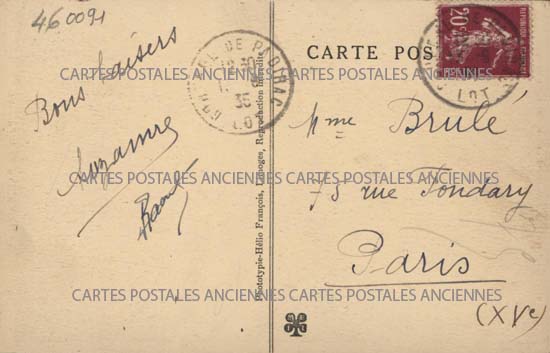 460091
Bons baisers
Suzanne
Raoul
CARTE POS
Phototypie-Hélio François, Limoges, Reproduction interdite
DE PADIRAC
LOT
35
REPUBLIQUE FRANCAISE
20c
LOT
Mme Brulé
75 rue Fondary
Paris
(XVe)
CARTES POSTALES ANCIENNES CARTES POSTALES ANCIENNES
CARTES POSTALES ANCIENNES CARTES POSTALES ANCIENNES
CARTES POSTALES ANCIENNES CARTES POSTALES ANCIENNES